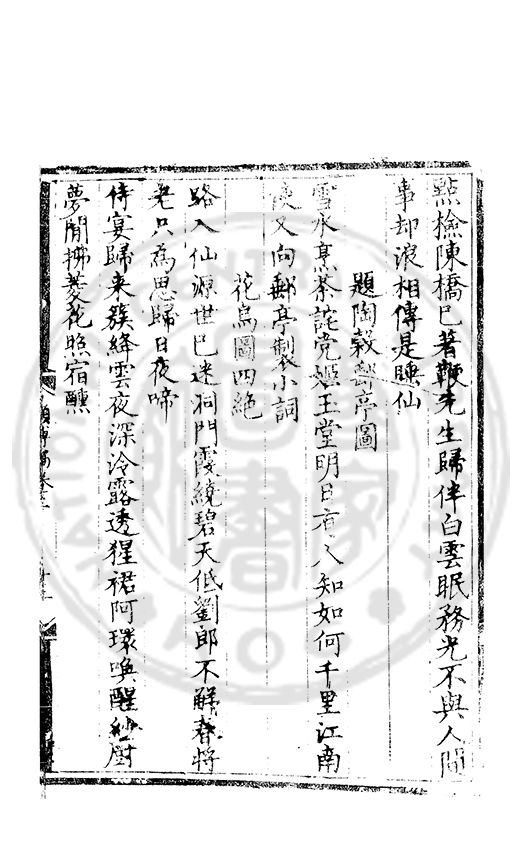 點檢陳橋已著鞭先生歸伴白雲眠務光不與人間
事却浪相傳是睡仙
題陶穀郵亭圖
雪水烹茶詫党姬玉堂明日有人知如何千里江南
使又向郵亭製小詞
花鳥圖四絶
路入仙源世已迷洞門霞繞碧天低劉郎不解春將
老只爲思歸日夜啼
侍宴歸來簇絳雲夜深冷露透猩裙阿環喚醒紗廚
夢閒拂菱花照宿醺